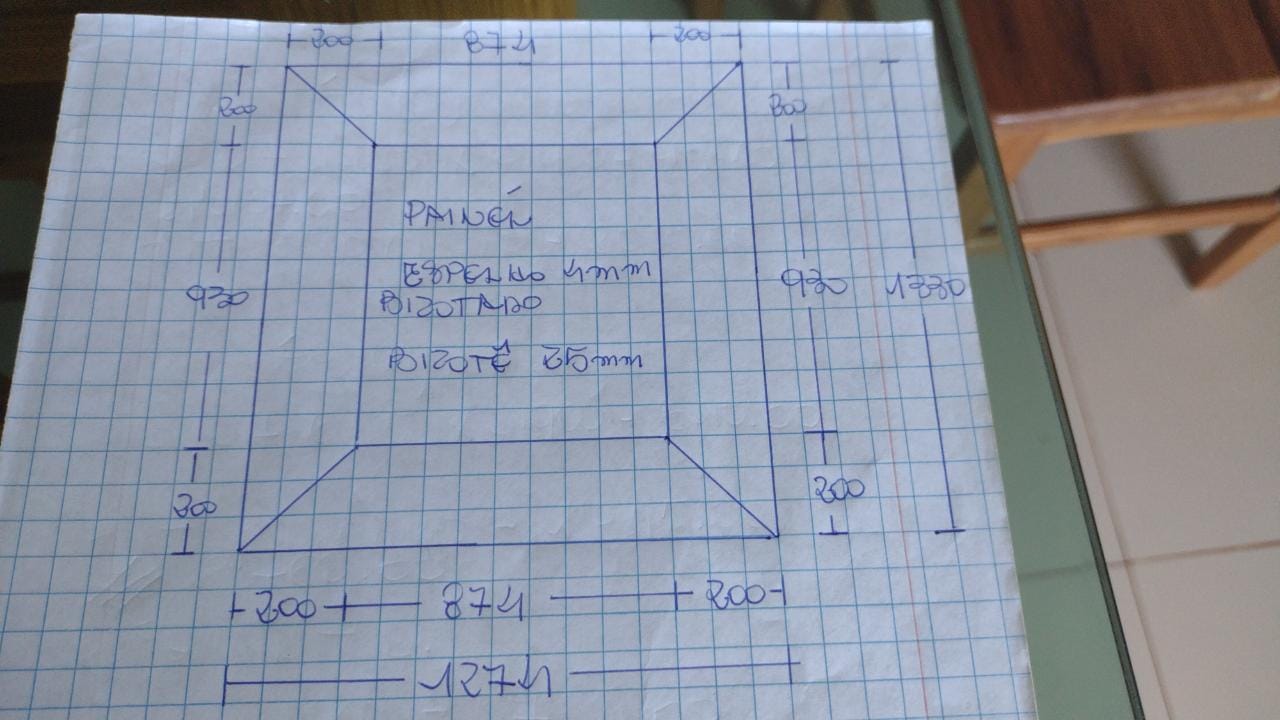 200 874 200
200 200
PAINÉL
ESPELHO 4mm
930 BIZOTADO 930 1330
BIZOTÊ 25mm
200 200
200 874 200
1274